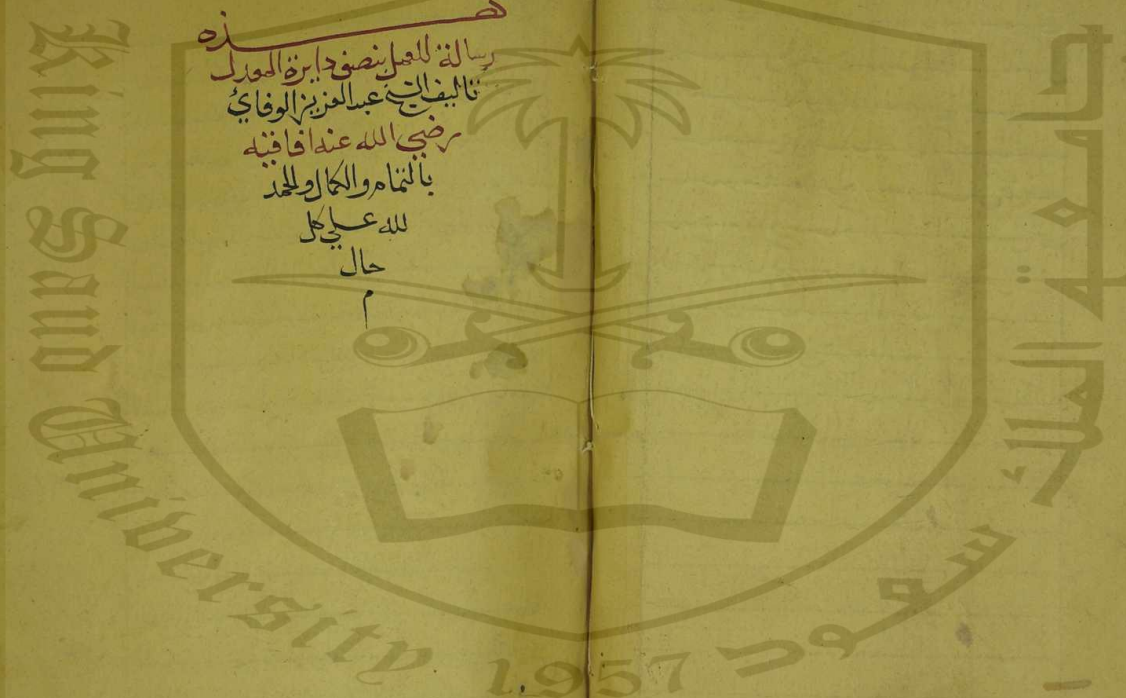 هذه
رسالة للعمل بنصف دايرة المعدل
تاليف الشيخ عبد العزيز الوفاي
رضي الله عنه افاقية
بالتمام والكمال والحمد
لله علي كل
حال
م
King Saud University 1957
جامعة الملك سعود